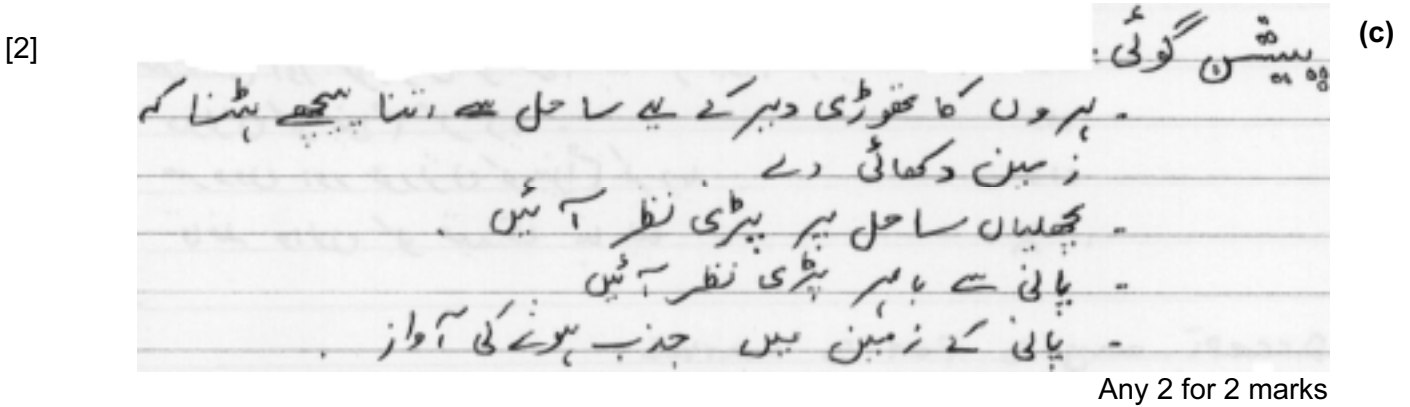 (c) پیشن گوئی: [2]
- لہروں کا تھوڑی دیر کے لیے ساحل سے اتنا پیچھے ہٹنا کہ
زمین دکھائی دے
- مچھلیاں ساحل پر پڑی نظر آئیں .
- پانی سے باہر پڑی نظر آئیں
- پانی کے زمین میں جذب ہونے کی آواز .
Any 2 for 2 marks